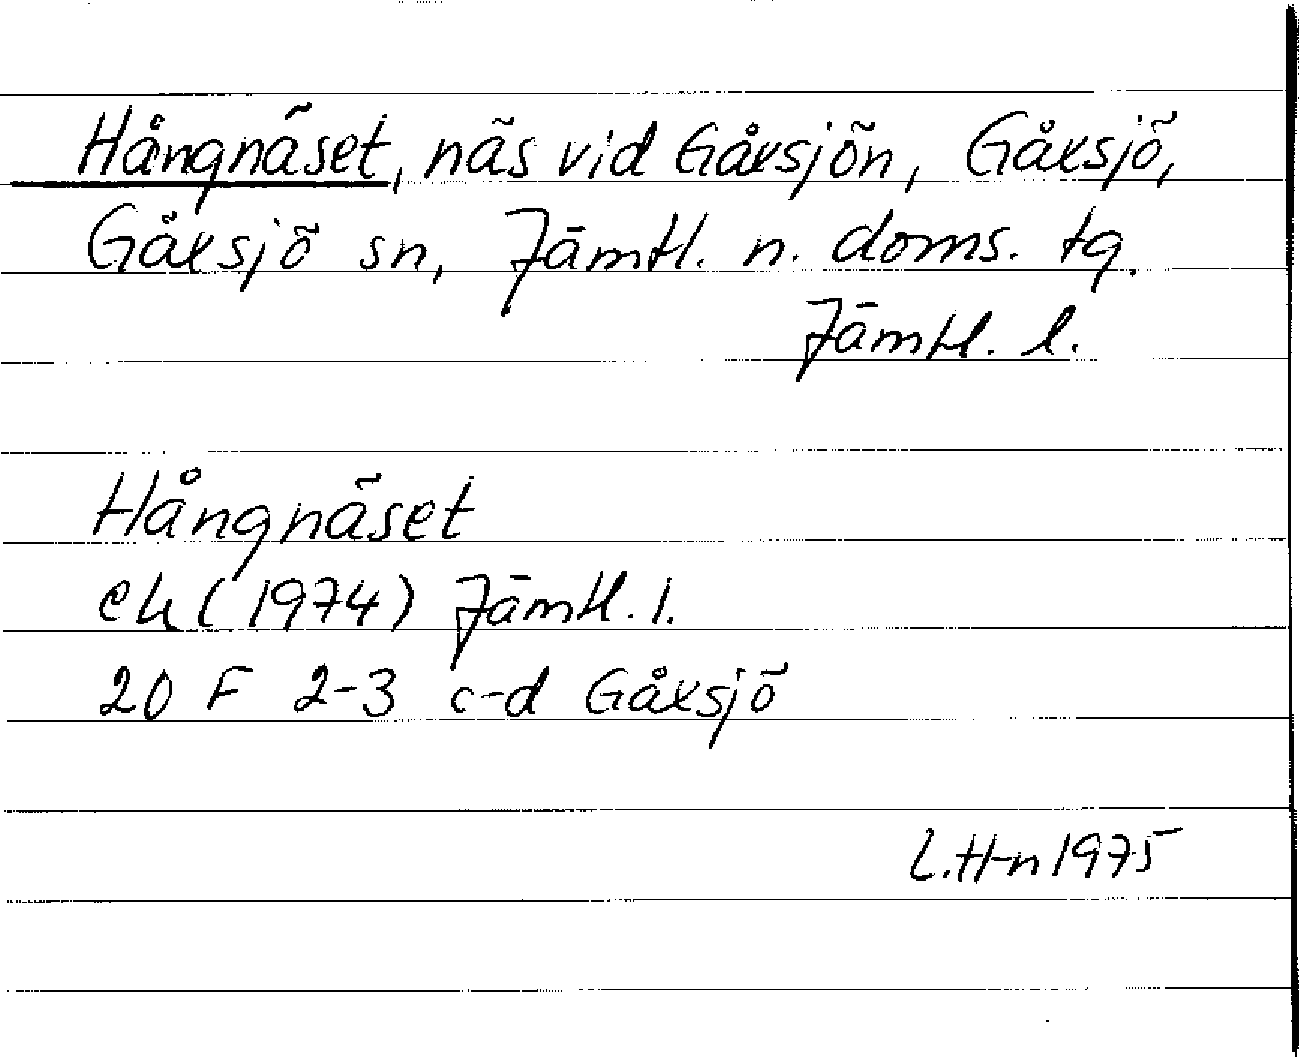 Hångnäset, näs vid Gåxsjön, Gåxsjö,
Gåxsjö sn, Jämtl. n. doms. tg.
Jämtl. l.
Hångnäset
ek (1974) Jämtl. l.
20 F 2-3 c-d Gåxsjö
L.H-n 1975